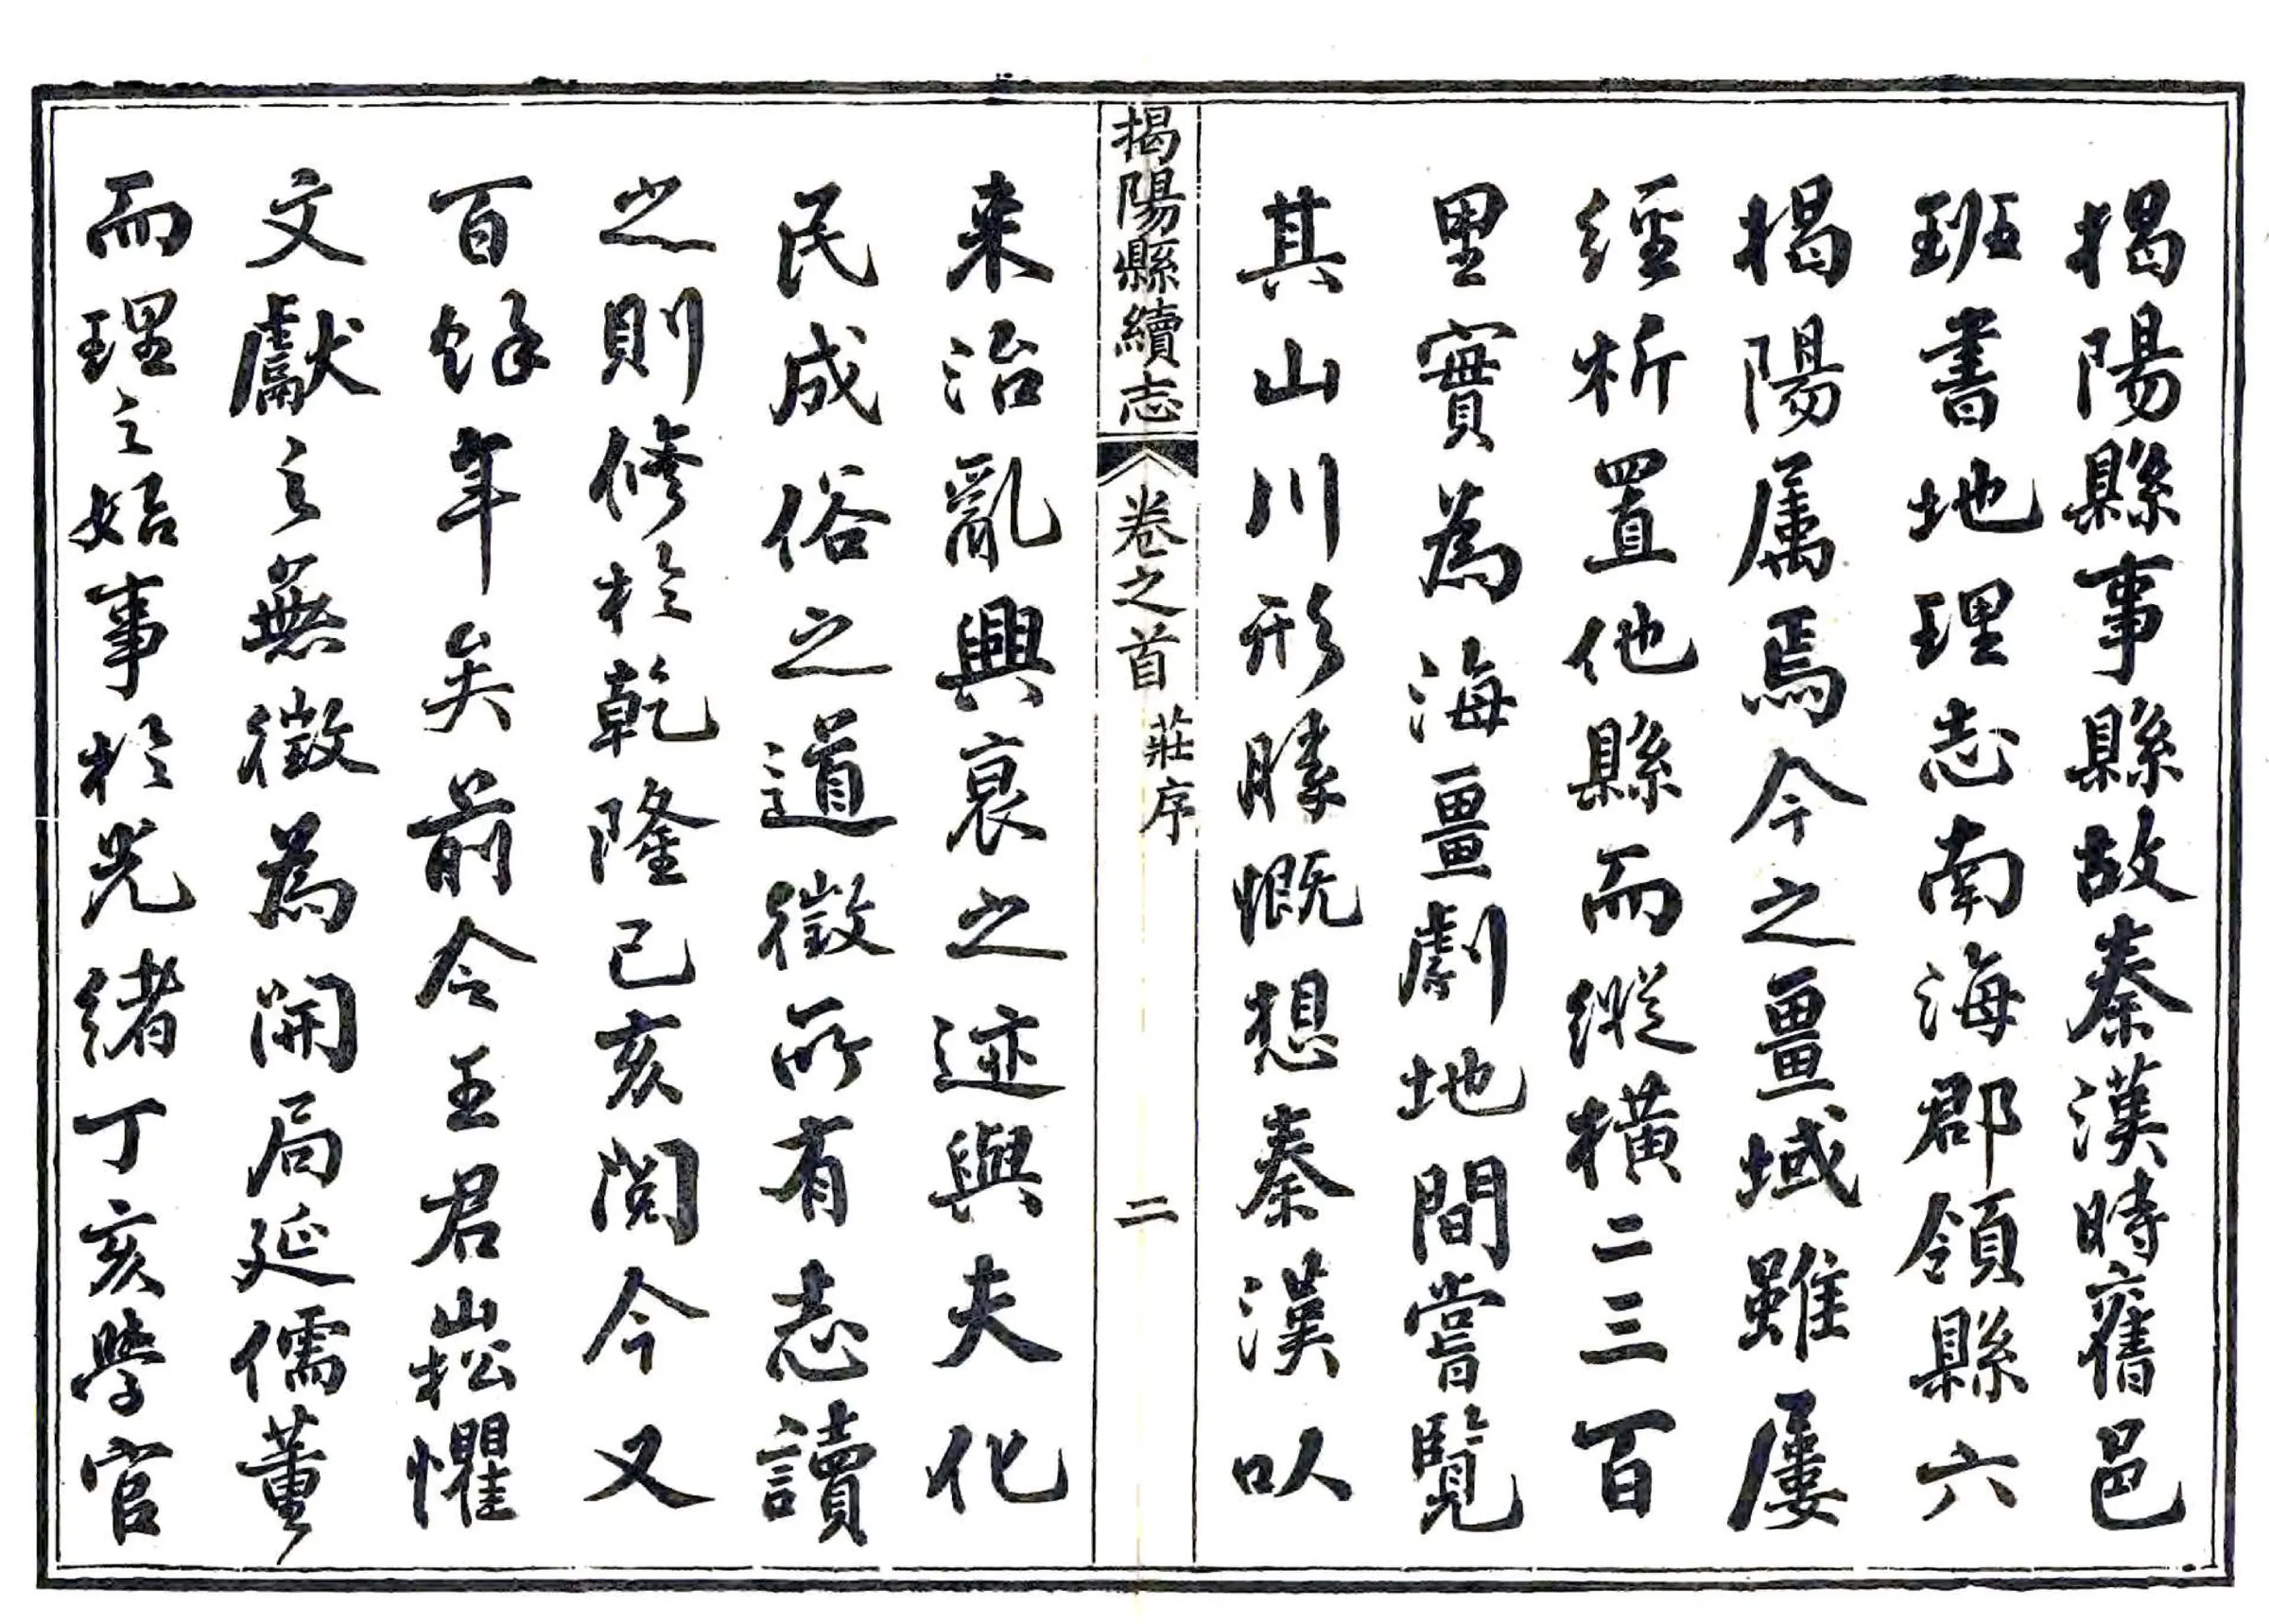 揭陽縣事縣故秦漢時舊邑
班書地理志南海郡領縣六
揭陽属焉今之畺域雖屢
經析置他縣而縱橫二三百
里實為海畺劇地間嘗覽
其山川形勝慨想秦漢以
揭陽縣續志
卷之首
莊序
二
来治亂興衰之迹與夫化
民成俗之道徵所有志讀
之則修於乾隆己亥閲今又
百餘年矣前令王君崧懼
文獻之無徵為開局延儒董
而理之始事於光緒丁亥學官